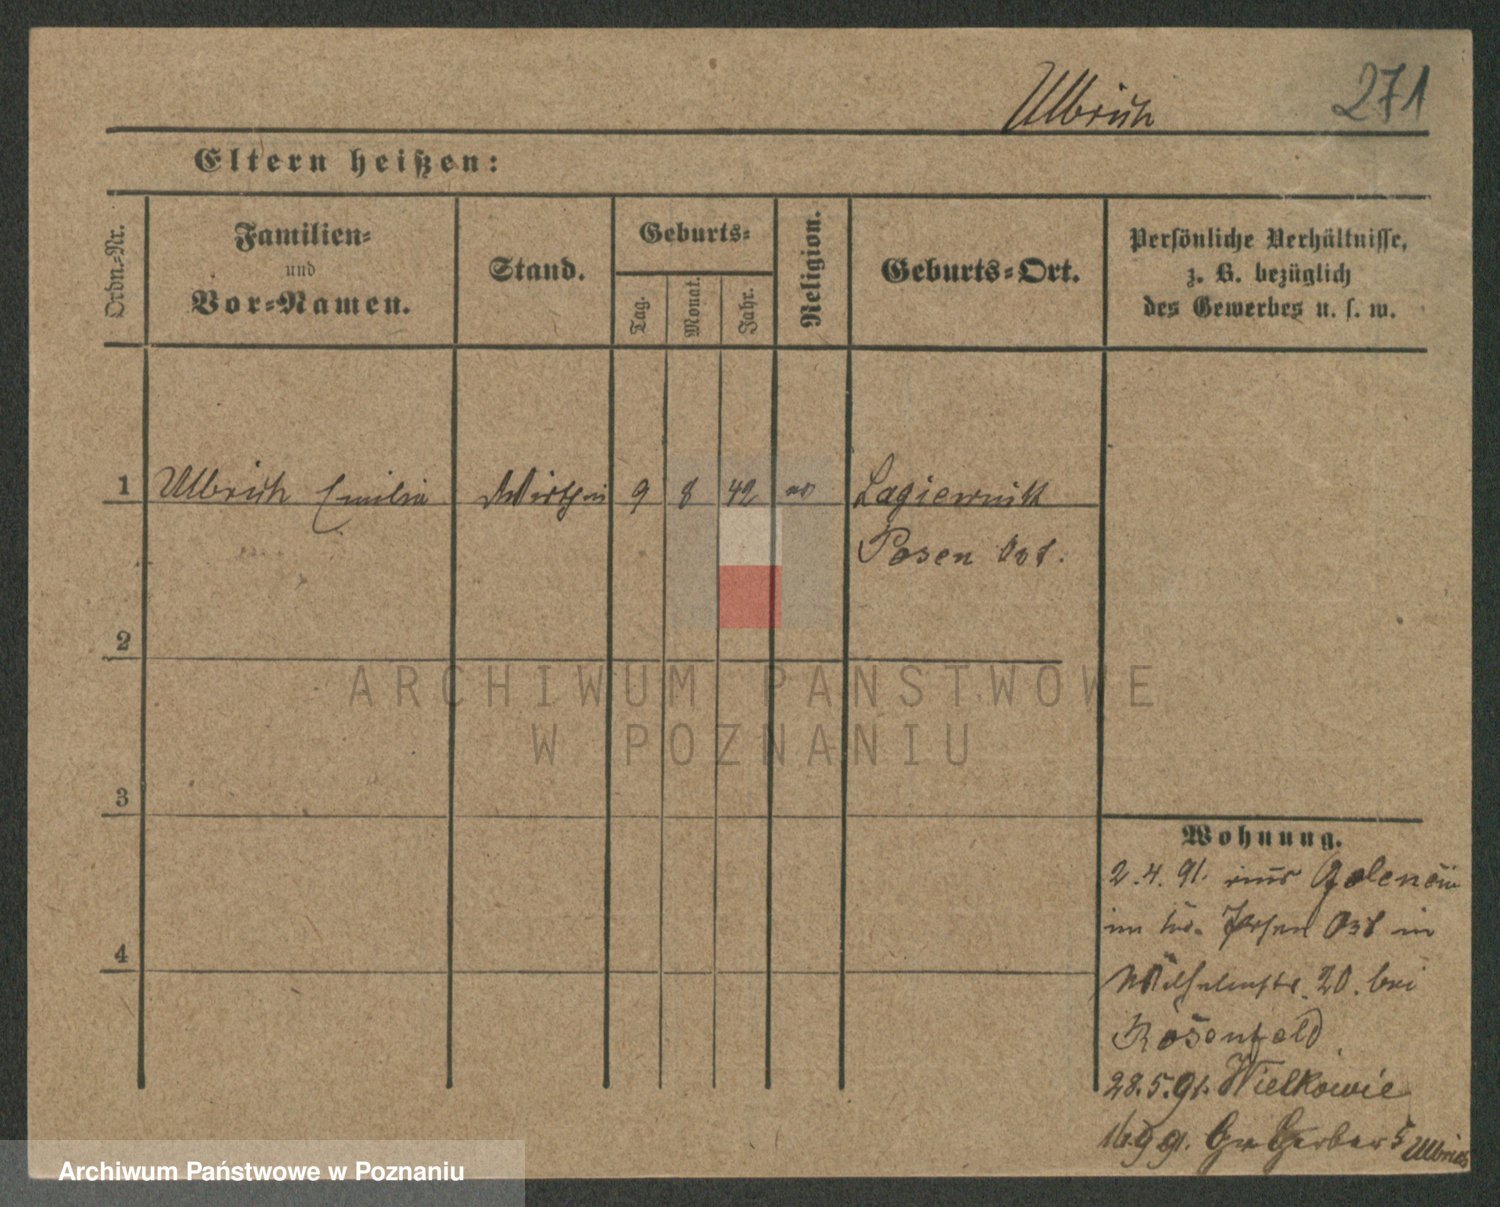 Ulbrich
271
Eltern heißen:
Ordn.-Nr.
Familien-
und
Vor-Namen.
Stand.
Geburts-
Tag.
Monat.
Jahr.
Religion.
Geburts-Ort.
Persönliche Verhältnisse,
z. B. bezüglich
des Gewerbes u. s. w.
1
Ulbrich Emilie
Wirthin
9
8
42
Lagiewnik
Posen Ost.
2
ARCHIWUM PAŃSTWOWE
W POZNANIU
3
4
Wohnung.
2.4.91. aus Golencin
im Kr. Posen Ost in
Wilhelmstr. 20. bei
Rosenfeld
28.5.91. Wielkowie
Gr. Gerber 5 Ulbrich
Archiwum Państwowe w Poznaniu